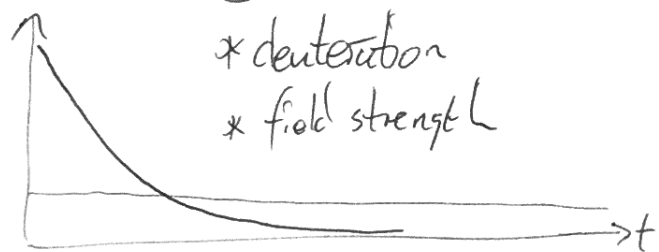 * deuteration
* field strength
t